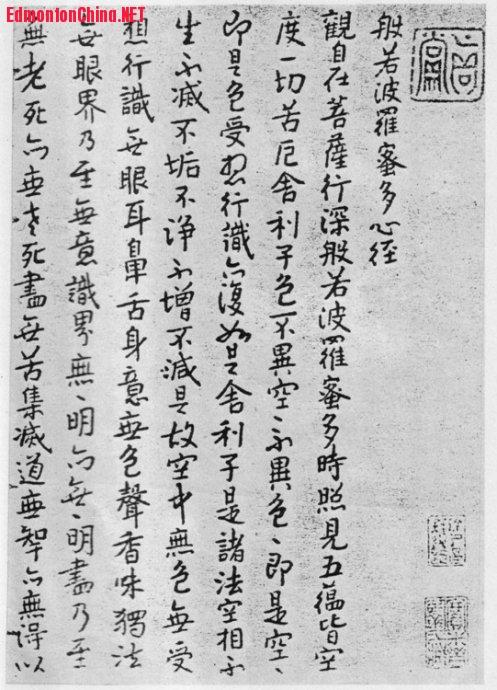 EdmontonChina.NET
般若波羅蜜多心徑
觀自在菩薩行深般若波羅蜜多時照見五蘊皆空
度一切苦厄舍利子色不異空、不異色、即是空、
即是色受想行識亦復如是舍利子是諸法空相不
生不滅不垢不淨不增不減是故空中無色無受
想行識無眼耳鼻舌身意無色聲香味獨法
無眼界乃至無意識界無、明亦無、明盡乃至
無老死亦無老死盡無苦集滅道無智亦無得以